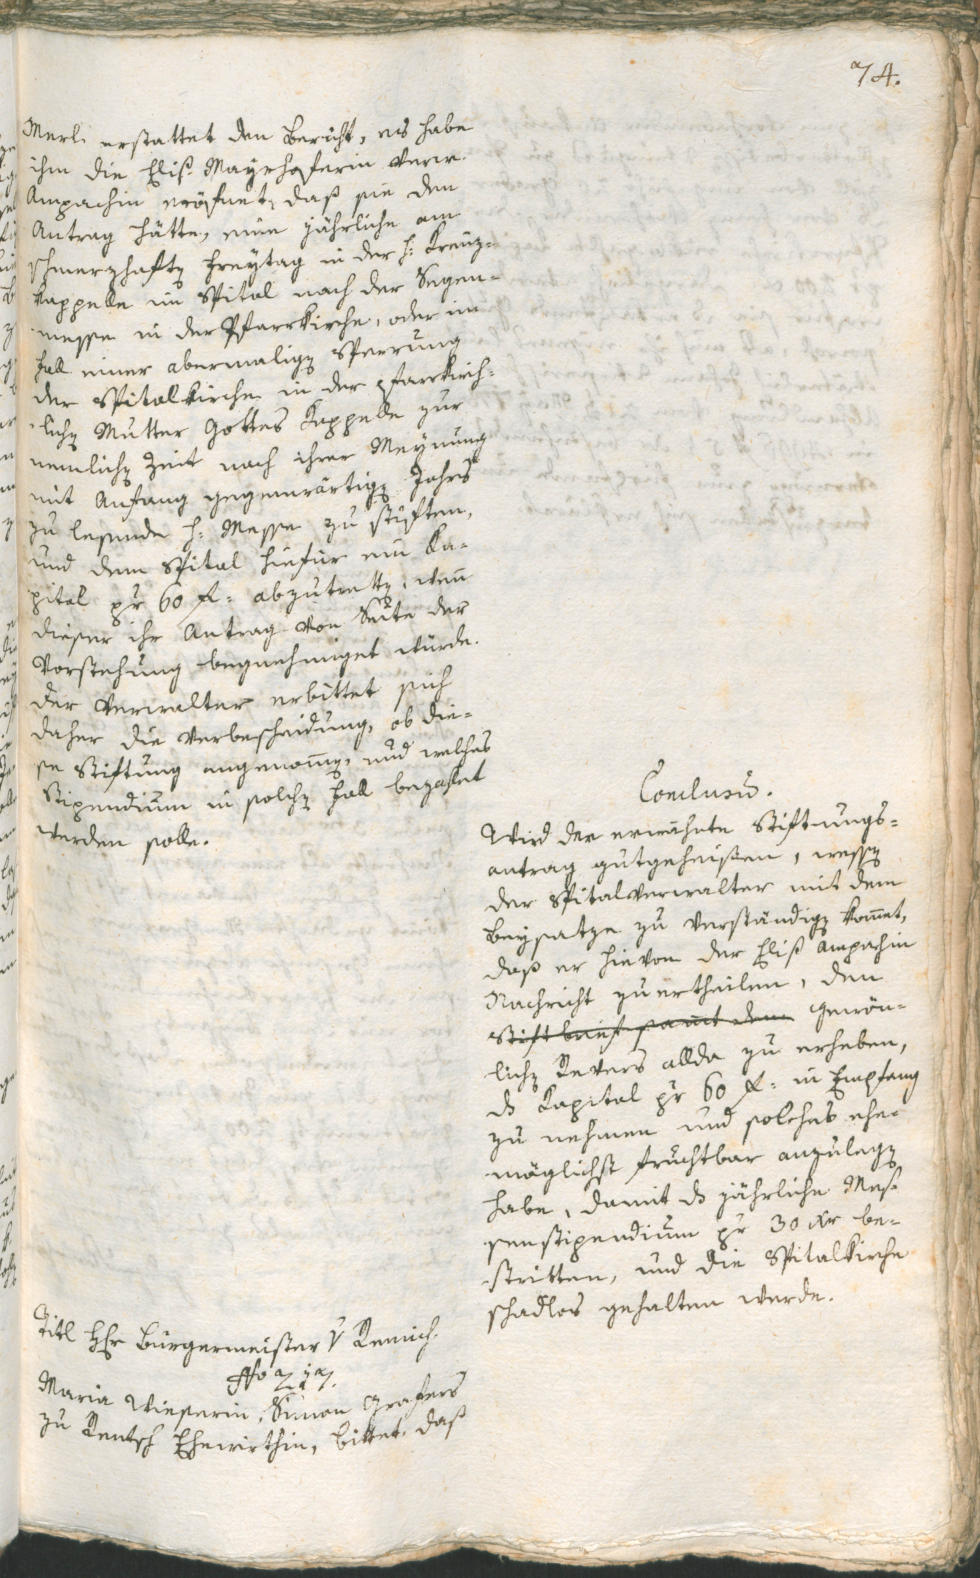 74.
Merl. erstattet den Bericht, es habe
ihm die Elis. Mayrhoferin verw.
Ampachin eröfnet, daß sie den
Antrag hätte, eine jährliche am
schmerzhaften Freytag in der h: Kreuz-
kappelle im Spital nach der Segen-
messe in der Pfarrkirche, oder im
Fall einer abermaligen Sperrung
der Spitalkirche in der pfarrkirch-
lichen Mutter Gottes Kappelle zur
nemlichen Zeit nach ihrer Meynung
mit Anfang gegenwärtigen Jahrs
zu lesende h: Messe zu stiften,
und dem Spital hiefür ein Ka-
pital pr 60 fl: abzutretten, wenn
dieser ihr Antrag von Seite der
Vorstehung begnehmiget würde.
Der Verwalter erbittet sich
daher die Verbescheidung, ob die-
se Stiftung angenommen, und welches
Stipendium in solchen Fall bezahlet
werden solle.
Conclusum.
Wird der erwähnte Stiftungs-
antrag gutgeheißen, wessen
der Spitalverwalter mit dem
Beysatze zu verständigen kommt,
daß er hievon der Elis. Ampachin
Nachricht zu ertheilen, den
Stiftbrief samt dem gewön-
lichen Revers allda zu erheben,
ds Kapital pr 60 fl: in Empfang
zu nehmen und solches ehe-
möglichst fruchtbar anzulegen
habe, damit ds jährliche Mes-
senstipendium pr 30 Xr be-
stritten, und die Spitalkirche
schadlos gehalten werde.
Titl Hr Bürgermeister v Remich.
No 217.
Maria Wieserin, Simon Grafers
zu Rentsch Ehewirthin, bittet, daß